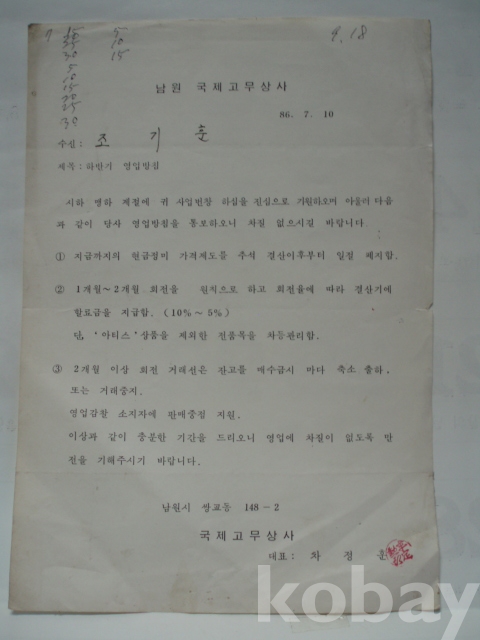 9. 18
7 15 5
25 10
30 15
5
10
15
20
25
30
남원 국제고무상사
86. 7. 10
수신: 조 기 춘
제목: 하반기 영업방침
시하 맹하 제절에 귀 사업번창 하심을 진심으로 기원하오며 아울러 다음
과 같이 당사 영업방침을 통보하오니 차질 없으시길 바랍니다.
① 지금까지의 현금정미 가격제도를 추석 결산이후부터 일절 폐지함.
② 1개월~2개월 회전을 원칙으로 하고 회전율에 따라 결산기에
할료금을 지급함. (10%~5%)
단, '아티스' 상품을 제외한 전품목을 차등관리함.
③ 2개월 이상 회전 거래선은 잔고를 매수금시 마다 축소 출하,
또는 거래중지.
영업감찰 소지자에 판매중점 지원.
이상과 같이 충분한 기간을 드리오니 영업에 차질이 없도록 만
전을 기해주시기 바랍니다.
남원시 쌍교동 148-2
국제고무상사
대표: 차 정 운
kobay